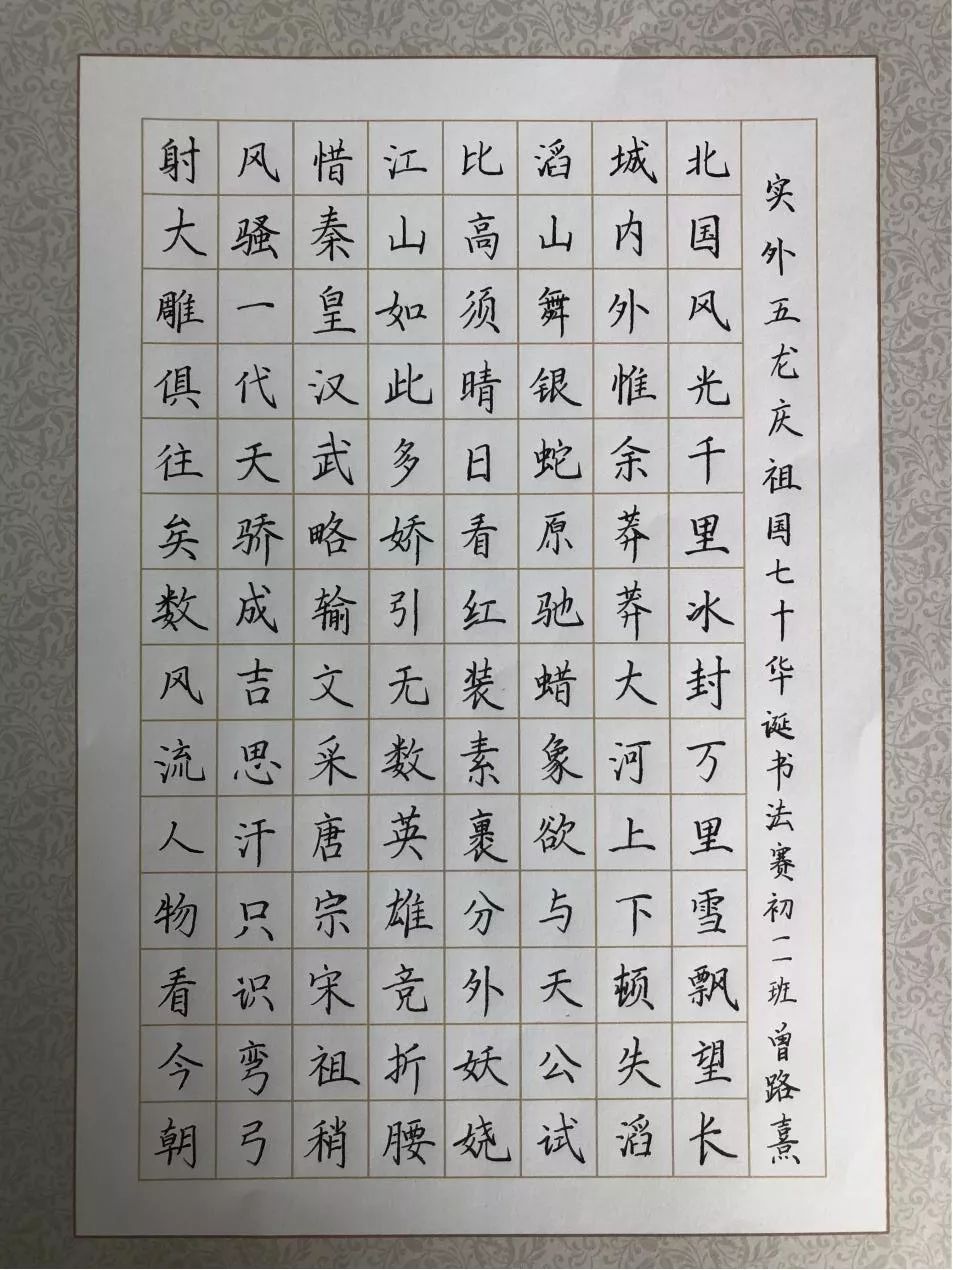 实外五龙庆祖国七十华诞书法赛初二班曾路熹
北国风光千里冰封万里雪飘望长
城内外惟余莽莽大河上下顿失滔
滔山舞银蛇原驰蜡象欲与天公试
比高须晴日看红装素裹分外妖娆
江山如此多娇引无数英雄竞折腰
惜秦皇汉武略输文采唐宗宋祖稍
风骚一代天骄成吉思汗只识弯弓
射大雕俱往矣数风流人物看今朝